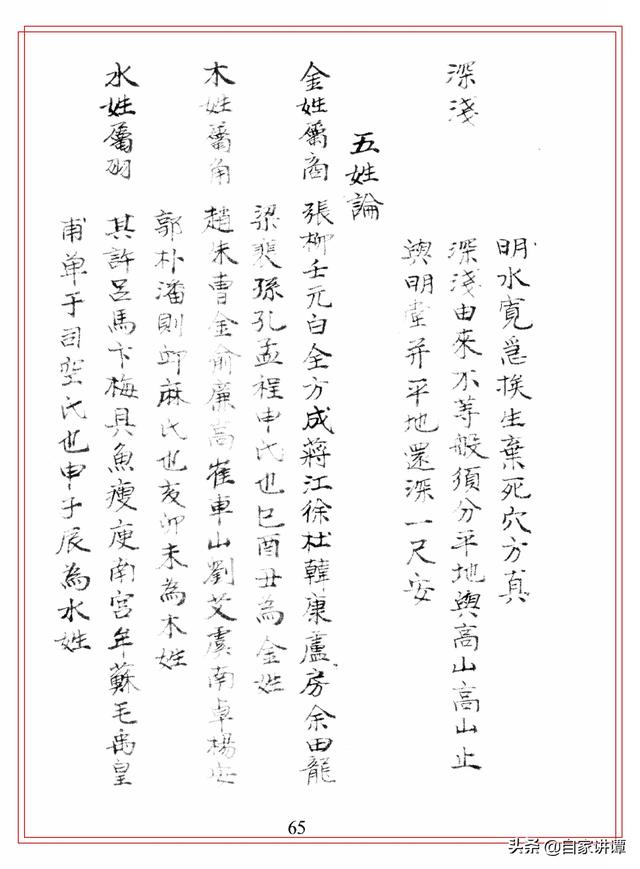 明水寬急挨生棄死穴方真
深淺
深淺由來不等般須分平地與高山高山止
與明堂并平地還深一尺安
五姓論
金姓屬商 張柳壬元白全方成蔣江徐杜韓康盧房余田龍
梁裴孫孔孟程申氏也巳酉丑為金姓
木姓屬角 趙朱曹金俞廉高崔車山劉艾虞南卓楊
郭朴潘則邱麻氏也亥卯未為木姓
水姓屬羽 其許呂馬卞梅具魚瘦庚南宮年蘇毛禹皇
甫单于司空氏也申子辰為水姓
65
头条 @自家讲谭